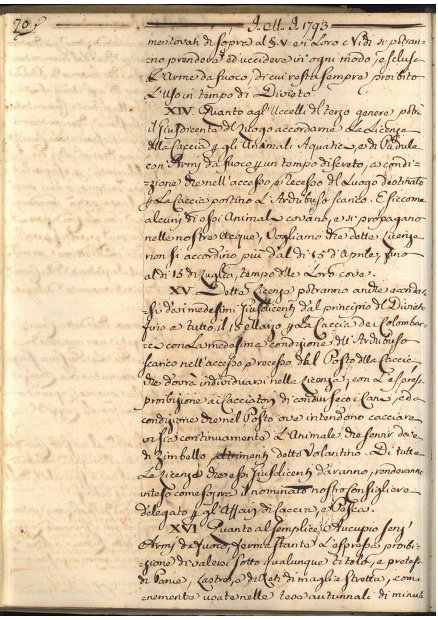 70
I. M. I. 1793
mentovati di sopra al §. V. e i Loro Nidi si potran-
no prendere ed uccidere in ogni modo, escluse
L'Arme da fuoco, di cui resta sempre proibito
L'uso in tempo di Divieto.
XIV. Quanto agl'Uccelli del terzo genere potrà
il Giusdicente del Luogo accordarne La Licenza
della Caccia per gli Animali Aquatici, e di Padule
con Armi da fuoco per un tempo discreto, a condi-
zione che nell'accesso e recesso del Luogo destinato
per La Caccia portino L'Archibuso scarico. E siccome
alcuni di essi Animali covano, e si propagano
nelle nostre Acque, Vogliamo che dette Licenze
non si accordino più dal dì 15 d'Aprile, fino
al dì 15 di Luglio, tempo delle Loro cove.
XV. Dette Licenze potranno anche accordar-
si dai medesimi Giusdicenti dal principio del Divieto
fino a tutto il 15 Marzo per La Caccia dei Colombac-
ci con La medesima condizione dell'Archibuso
scarico nell'accesso e recesso dal Posto della Caccia
che dovrà individuarsi nella Licenza, con L'espressa
proibizione ai Cacciatori di condur seco i Cani, e da
condizione che nel Posto ove intendono cacciare
vi sia continuamente L'Animale che servir dee
di Zimbello detto Volantino. Di tutte
Le Licenze che essi Giusdicenti daranno, renderanno
inteso come sopra il nominato nostro Consigliere
delegato per gli Affari di Caccia, e Pesca.
XVI. Quanto al semplice Aucupio senz'
Armi da fuoco, ferma stante L'espressa proibi-
zione di valersi sotto qualunque titolo, e pretesto
di Panie, Lastre, e di Reti di maglia stretta, comu-
nemente usate nelle tese autunnali di minuti